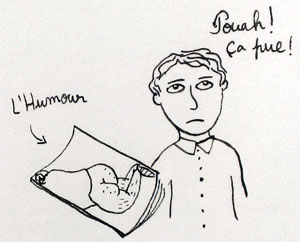 Pouah!
Ça pue!
L'Humour